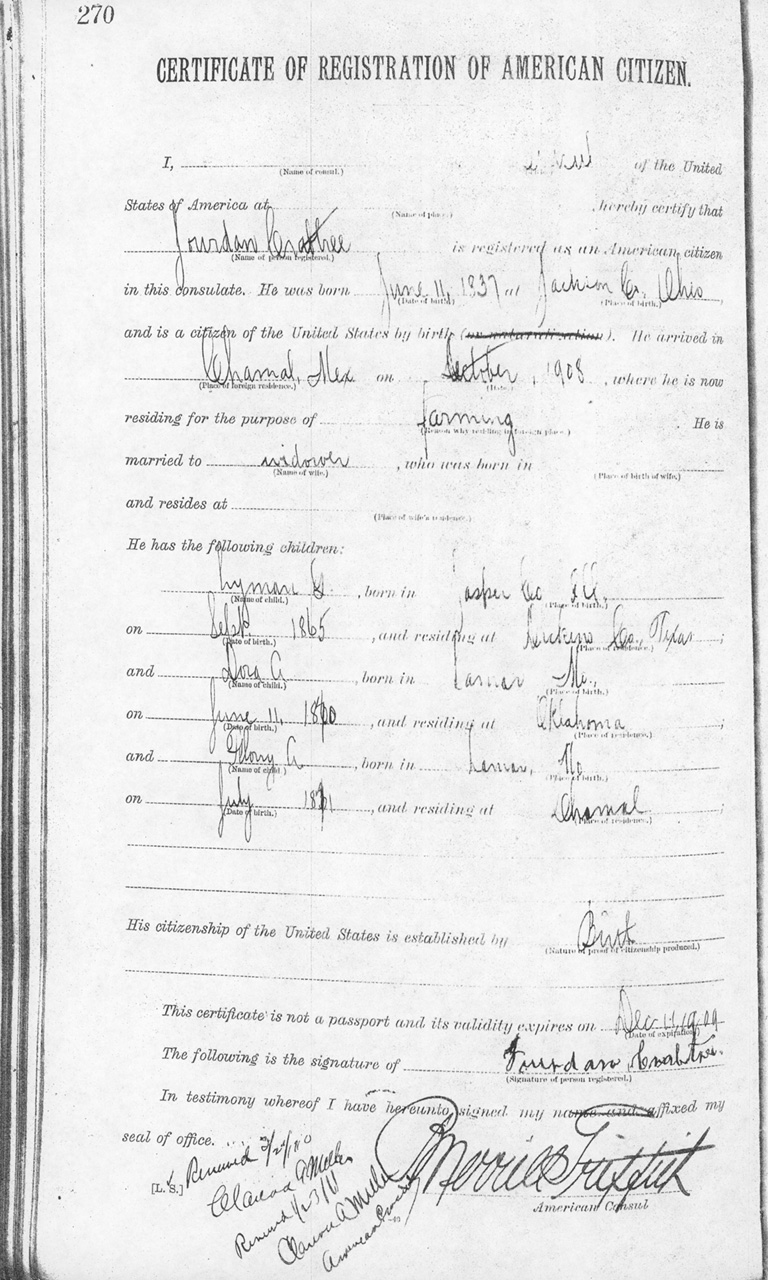 270
CERTIFICATE OF REGISTRATION OF AMERICAN CITIZEN.
I, of the United
(Name of consul.)
States of America at , hereby certify that
(Name of place.)
Jourdan Crabtree is registered as an American citizen
(Name of person registered.)
in this consulate. He was born June 11, 1837 at Jackson Co, Ohio
(Date of birth.) (Place of birth.)
and is a citizen of the United States by birth (or naturalization). He arrived in
Chamal, Mex on October, 1908, where he is now
(Place of foreign residence.) (Date.)
residing for the purpose of farming. He is
(Reason why residing in foreign place.)
married to widower, who was born in
(Name of wife.) (Place of birth of wife.)
and resides at
(Place of wife's residence.)
He has the following children:
Lyman , born in Jasper Co Ill,
(Name of child.) (Place of birth.)
on Sept 1865, and residing at Dickens Co., Texas;
(Date of birth.) (Place of residence.)
and Dora A, born in Lamar Mo.,
(Name of child.) (Place of birth.)
on June 11, , and residing at Oklahoma;
(Date of birth.) (Place of residence.)
and A, born in Lamar, Mo
(Name of child.) (Place of birth.)
on July , and residing at Chamal;
(Date of birth.) (Place of residence.)
His citizenship of the United States is established by Birth
(Nature of proof of citizenship produced.)
This certificate is not a passport and its validity expires on Dec 11 1909
(Date of expiration.)
The following is the signature of Jourdan Crabtree.
(Signature of person registered.)
In testimony whereof I have hereunto signed my name and affixed my
seal of office.
[L. S.] Renewed
Clarence A Miller
Renewed 1/23/11
Clarence A Miller
American Consul
P Merrill Griffith
American Consul